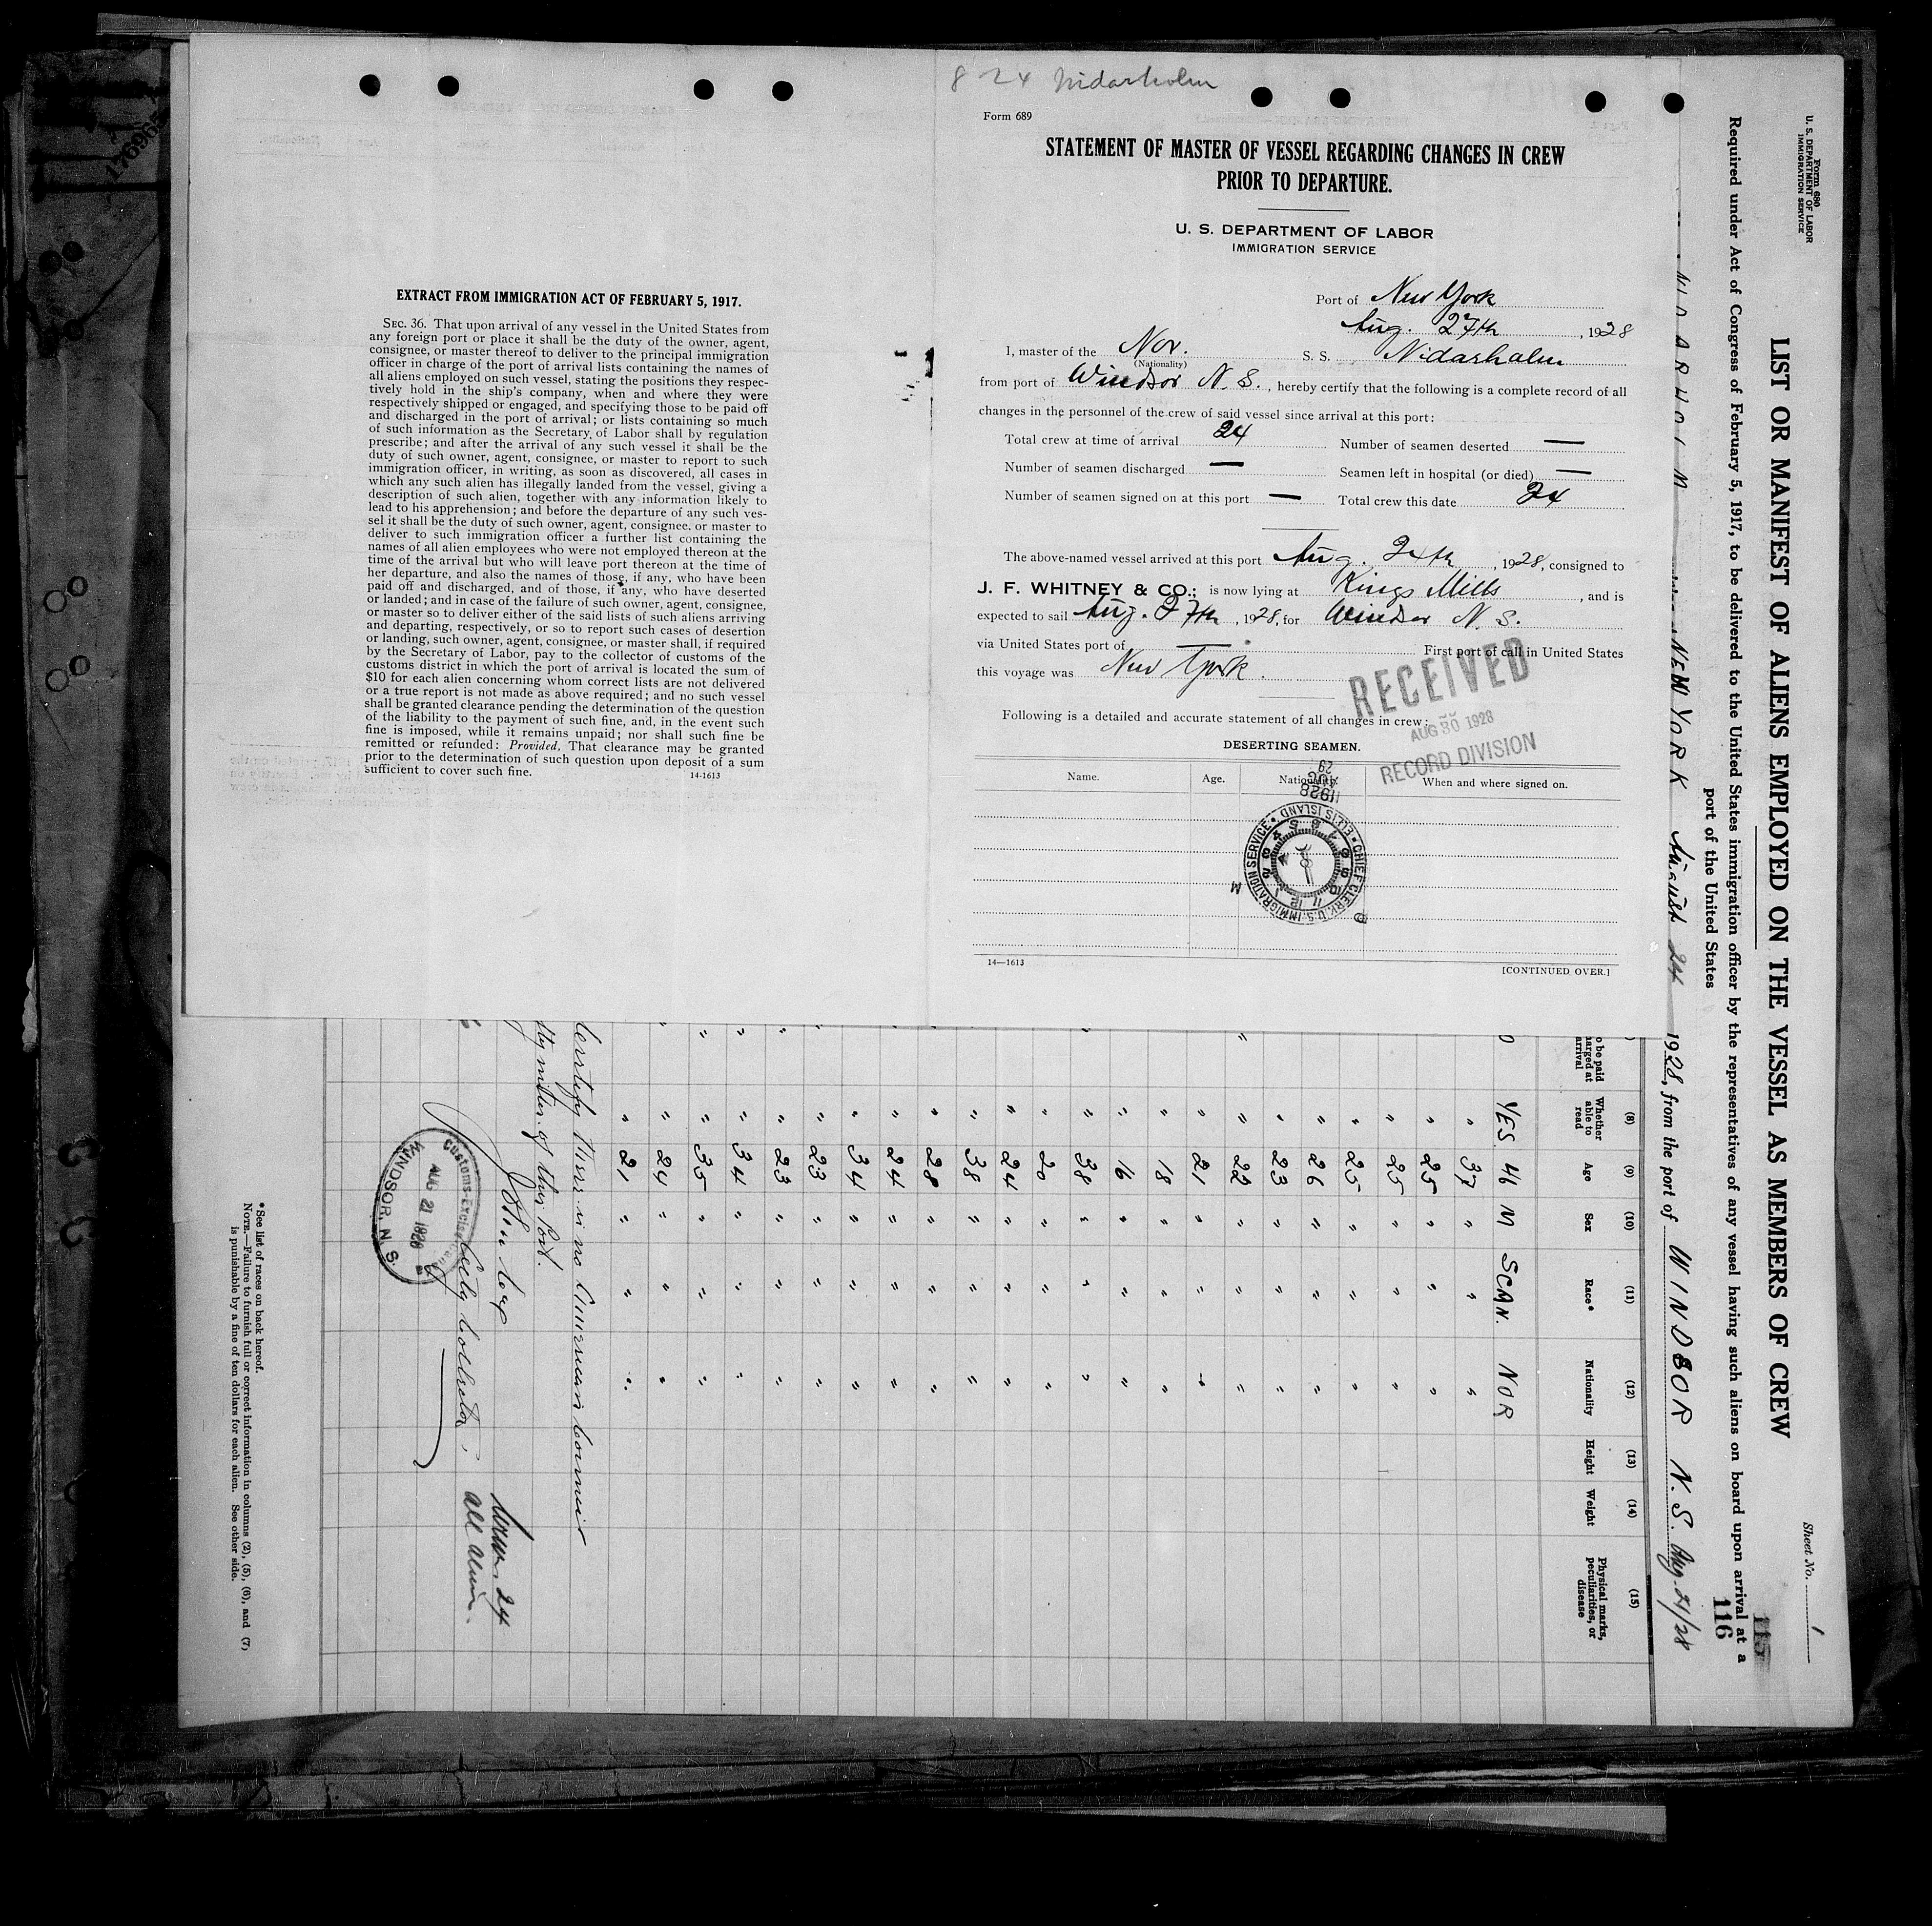 8 24 Nidarholm
Form 689
STATEMENT OF MASTER OF VESSEL REGARDING CHANGES IN CREW
PRIOR TO DEPARTURE.
U. S. DEPARTMENT OF LABOR
IMMIGRATION SERVICE
Port of New York
Aug. 27th, 1928
I, master of the Nor. S. S. Nidarholm
(Nationality)
from port of Windsor N. S., hereby certify that the following is a complete record of all
changes in the personnel of the crew of said vessel since arrival at this port:
Total crew at time of arrival 24 Number of seamen deserted —
Number of seamen discharged — Seamen left in hospital (or died) —
Number of seamen signed on at this port — Total crew this date 24
The above-named vessel arrived at this port Aug. 24th, 1928, consigned to
J. F. WHITNEY & CO.; is now lying at Kings Mills, and is
expected to sail Aug. 27th, 1928, for Windsor N. S.
via United States port of — First port of call in United States
this voyage was New York.
Following is a detailed and accurate statement of all changes in crew:
RECEIVED
AUG 30 1928
RECORD DIVISION
DESERTING SEAMEN.
Name. Age. Nationality. When and where signed on.
1928
AUG
29
CHIEF CLERK U.S. IMMIGRATION SERVICE • ELLIS ISLAND •
14—1613
[CONTINUED OVER.]
EXTRACT FROM IMMIGRATION ACT OF FEBRUARY 5, 1917.
SEC. 36. That upon arrival of any vessel in the United States from
any foreign port or place it shall be the duty of the owner, agent,
consignee, or master thereof to deliver to the principal immigration
officer in charge of the port of arrival lists containing the names of
all aliens employed on such vessel, stating the positions they respec-
tively hold in the ship's company, when and where they were
respectively shipped or engaged, and specifying those to be paid off
and discharged in the port of arrival; or lists containing so much
of such information as the Secretary of Labor shall by regulation
prescribe; and after the arrival of any such vessel it shall be the
duty of such owner, agent, consignee, or master to report to such
immigration officer, in writing, as soon as discovered, all cases in
which any such alien has illegally landed from the vessel, giving a
description of such alien, together with any information likely to
lead to his apprehension; and before the departure of any such ves-
sel it shall be the duty of such owner, agent, consignee, or master to
deliver to such immigration officer a further list containing the
names of all alien employees who were not employed thereon at the
time of the arrival but who will leave port thereon at the time of
her departure, and also the names of those, if any, who have been
paid off and discharged, and of those, if any, who have deserted
or landed; and in case of the failure of such owner, agent, consignee,
or master so to deliver either of the said lists of such aliens arriving
and departing, respectively, or so to report such cases of desertion
or landing, such owner, agent, consignee, or master shall, if required
by the Secretary of Labor, pay to the collector of customs of the
customs district in which the port of arrival is located the sum of
$10 for each alien concerning whom correct lists are not delivered
or a true report is not made as above required; and no such vessel
shall be granted clearance pending the determination of the question
of the liability to the payment of such fine, and, in the event such
fine is imposed, while it remains unpaid; nor shall such fine be
remitted or refunded: Provided, That clearance may be granted
prior to the determination of such question upon deposit of a sum
sufficient to cover such fine.
14-1613
176965
Form 680
U. S. DEPARTMENT OF LABOR
IMMIGRATION SERVICE
Sheet No. 1
LIST OR MANIFEST OF ALIENS EMPLOYED ON THE VESSEL AS MEMBERS OF CREW
115
116
Required under Act of Congress of February 5, 1917, to be delivered to the United States immigration officer by the representatives of any vessel having such aliens on board upon arrival at a
port of the United States
NIDARHOLM NEW YORK August 24 1928, from the port of WINDSOR N. S. Aug. 21/28
o be paid
harged at
arrival
(8) Whether able to read
(9) Age
(10) Sex
(11) Race*
(12) Nationality
(13) Height
(14) Weight
(15) Physical marks, peculiarities, or disease
YES 46 M SCAN. NOR
" 37 " " "
" 25 " " "
" 25 " " "
" 25 " " "
" 26 " " "
" 23 " " "
" " 22 " " "
" 21 " " "
" 18 " " "
" 16 " " "
" " 38 " " "
" 20 " " "
" 24 " " "
" 38 " " "
" 28 " " "
" 24 " " "
" 34 " " "
" " 23 " " "
" " 23 " " "
" " 34 " " "
" " 35 " " "
" " 24 " " "
" 21 " " "
Certify there is no American Consul
of this Port.
Crew 24
all alien.
Customs-Excise
AUG 21 1928
WINDSOR, N. S.
*See list of races on back hereof.
NOTE.—Failure to furnish full or correct information in columns (2), (5), (6), and (7)
is punishable by a fine of ten dollars for each alien. See other side.